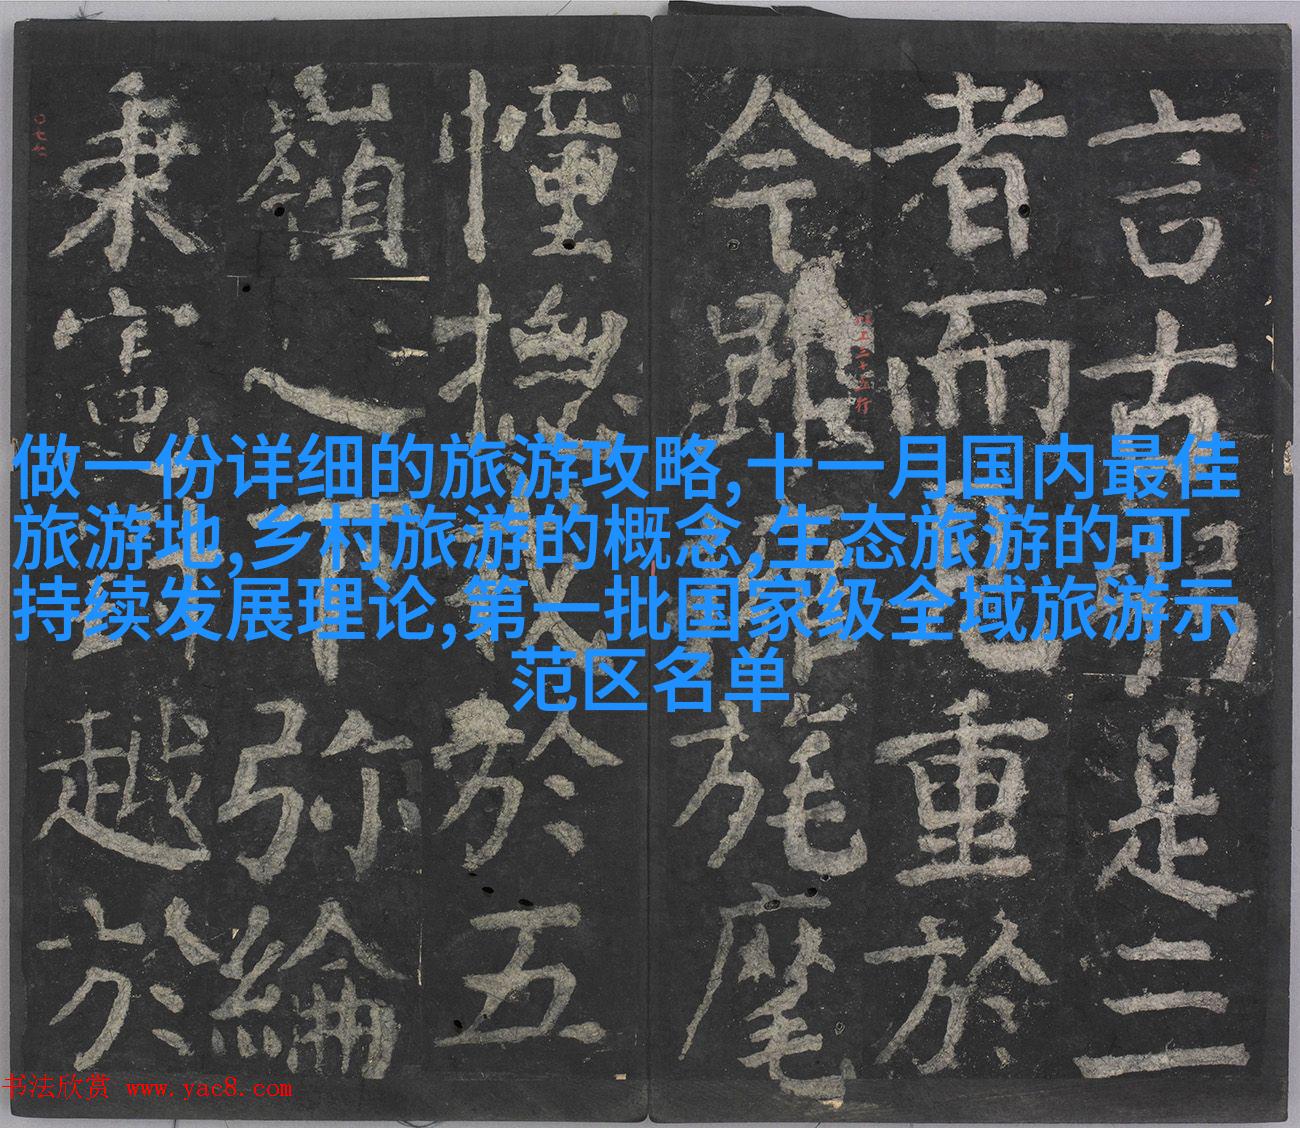 做一份详细的旅游攻略,十一月国内最佳
旅游地,乡村旅游的概念,生态旅游的可
持续发展理论,第一批国家级全域旅游示
范区名单
言古是三
者而已重於
今雖旄麾
憧撫於五
嶺之下弥綸
秉憲越於
书法欣赏 www.yac8.com